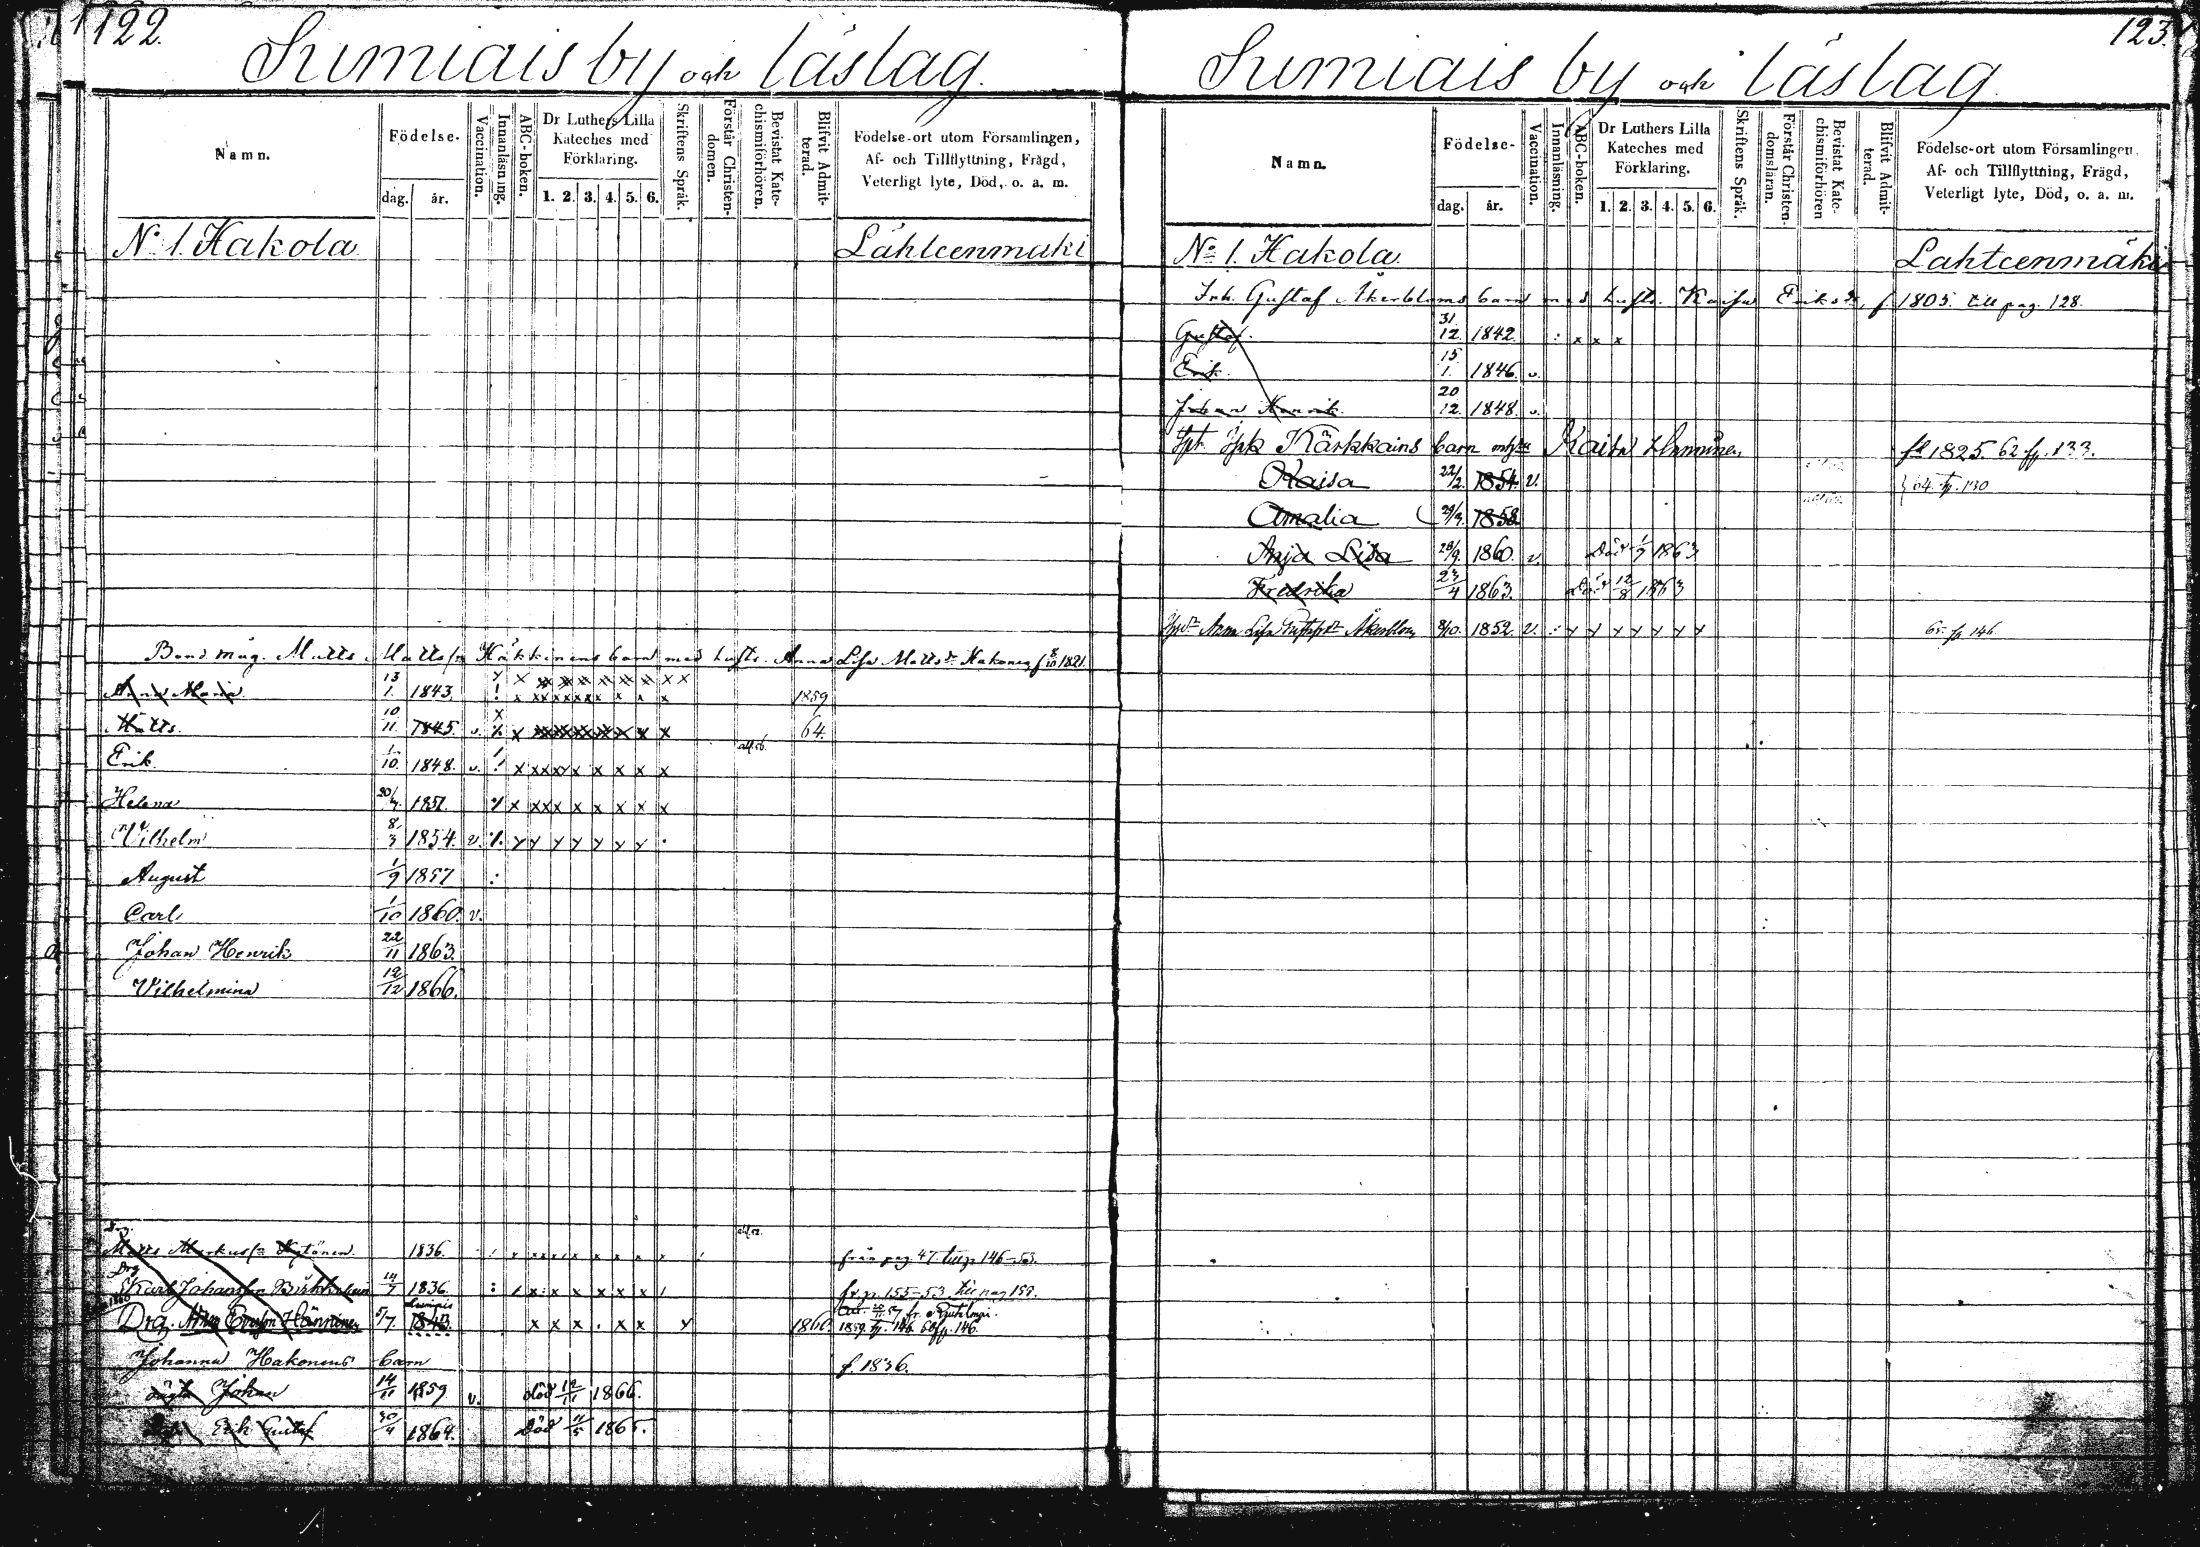 122.
Sumiais by och läslag.
Namn.
Födelse-
dag. år.
Vaccination.
Innanläsning.
ABC-boken.
Dr Luthers Lilla Kateches med Förklaring.
1. 2. 3. 4. 5. 6.
Skriftens Språk.
Förstår Christendomen.
Bevistat Katechismiförhören.
Blifvit Admitterad.
Födelse-ort utom Församlingen,
Af- och Tillflyttning, Frägd,
Veterligt lyte, Död, o. a. m.
No 1. Hakola. Lahteenmäki
Bond måg. Matts Matts Häkkinens barn med hustr. Anna Lisa Matts dr Hakonen f 8/10 1821.
Anna Maria 13 1. 1843. 1859
Matts. 10 11. 1845. v. 64.
Erik 1 10. 1848. v.
Helena 20/4. 1851.
Vilhelm 8 3 1854. v.
August 1/9 1857
Carl 1/10 1860. v.
Johan Henrik 22/11 1863.
Vilhelmina 12/12 1866.
Matts Markus 1836. från pag 47. till p. 146-53.
Drg
Karl Johansson 1836. fr p. 155-53 till pag 158.
Drg. Hänninen 5/7. 1843. 1860. 1859 fr. 146. 60 fp. 146.
Johanna Hakonens barn f 1836.
Johan 14 1859 v. död 12/11 1866.
Erik Gustaf 30/4 1864. Död 11/5 1865.
123.
Sumiais by och läslag.
Namn.
Födelse-
dag. år.
Vaccination.
Innanläsning.
ABC-boken.
Dr Luthers Lilla Kateches med Förklaring.
1. 2. 3. 4. 5. 6.
Skriftens Språk.
Förstår Christendomsläran.
Bevistat Katechismiförhören
Blifvit Admitterad.
Födelse-ort utom Församlingen,
Af- och Tillflyttning, Frägd,
Veterligt lyte, Död, o. a. m.
No 1. Hakola. Lahteenmäki
Inh. Gustaf Åkerbloms barn med hustr. Kaisa Eriks dr, f 1805. till pag. 128.
Gustaf. 31 12. 1842.
Erik. 15 1. 1846. v.
Johan Henrik 20 12. 1848. v.
Kärkkains barn Kaisa f 1825 62 fp. 133.
Kaisa 22/2. 1854. v. 64. fp. 130
Amalia 1858
Anja Lisa 28/9. 1860. v. Död 1/7 1863
Fredrika 23/4 1863. Död 12/8 1863
Anna Lisa Åkerblom 8/10. 1852. v. 65. fp 146